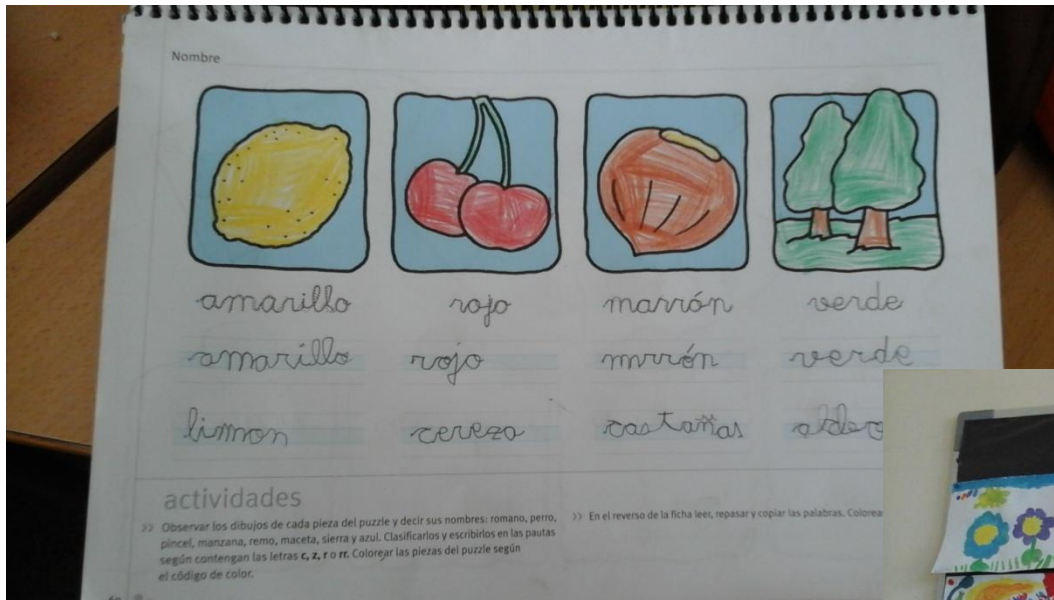 Nombre
amarillo rojo marrón verde
amarillo rojo mrrón verde
limon cereza castañas
actividades
>> Observar los dibujos de cada pieza del puzzle y decir sus nombres: romano, perro,
pincel, manzana, remo, maceta, sierra y azul. Clasificarlos y escribirlos en las pautas
según contengan las letras c, z, r o rr. Colorear las piezas del puzzle según
el código de color.
>> En el reverso de la ficha leer, repasar y copiar las palabras.